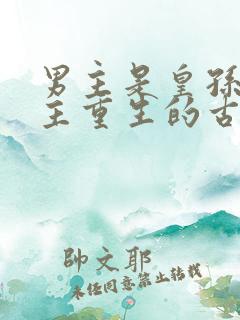 男主是皇孫
主重生的古
帥文耶
未经同意禁止转载